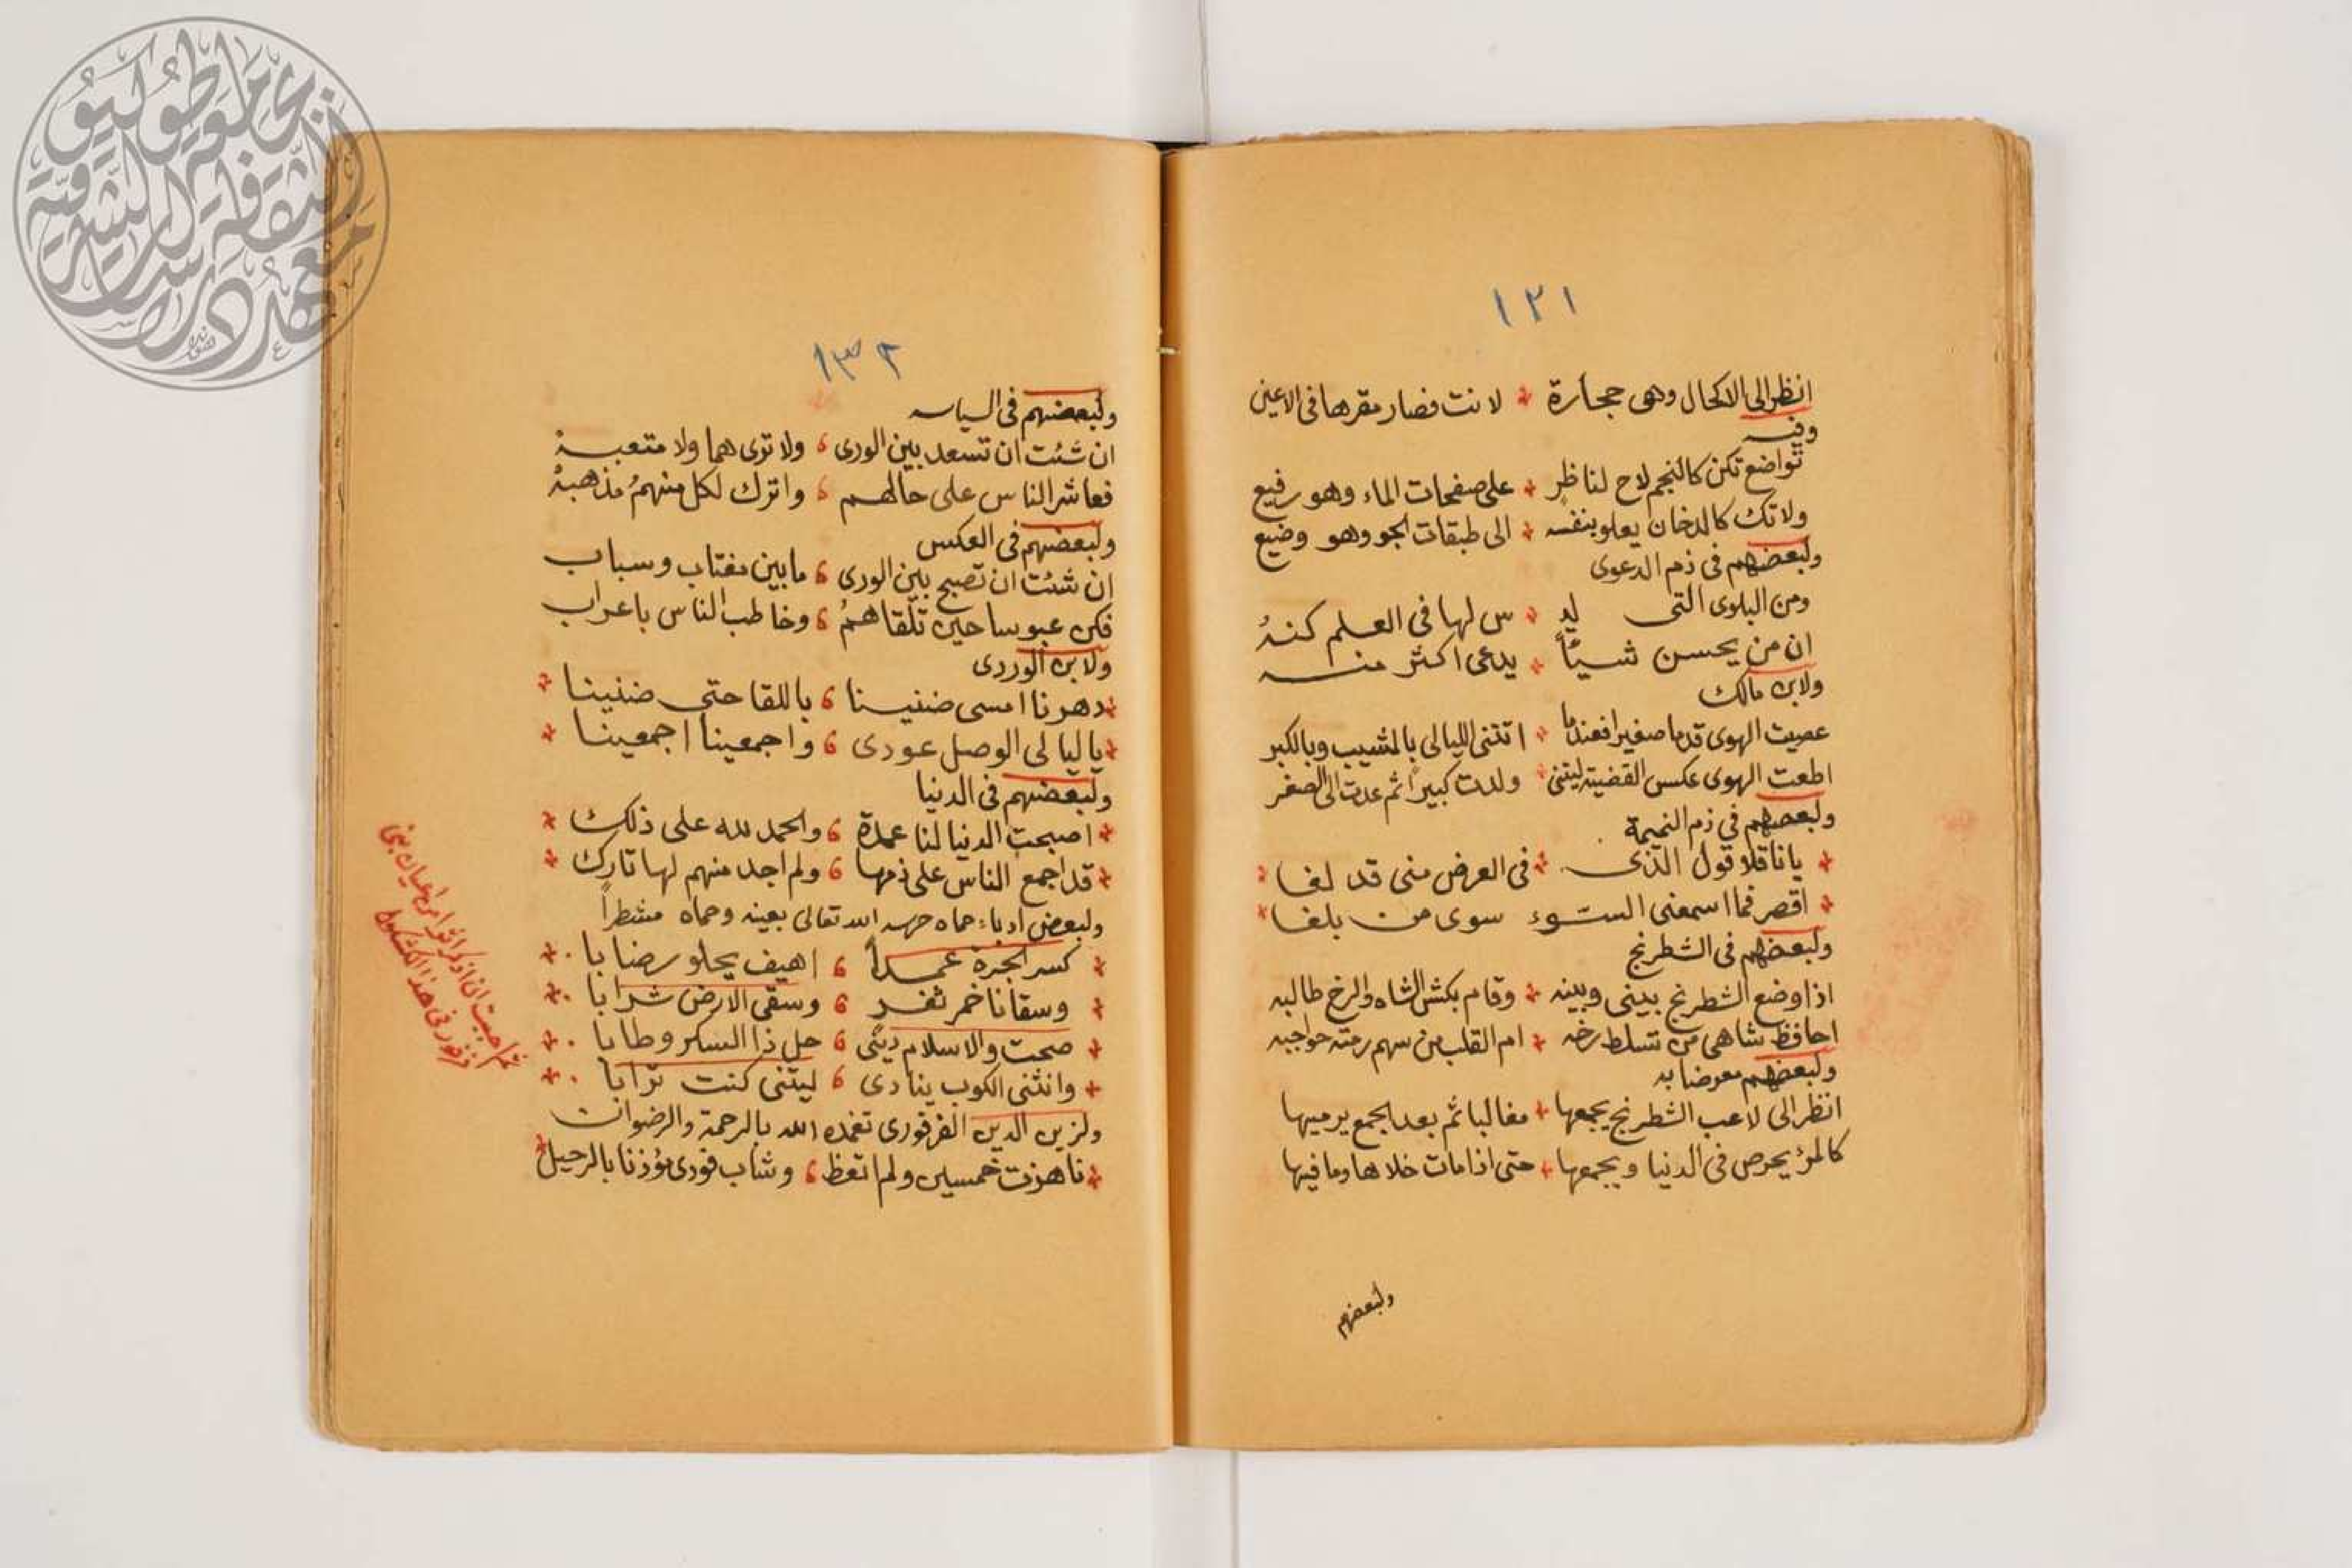 ١٢١
انظر الى الاكحال وهى حجارة * لانت فصار مقرها فى الاعين
وفيه
تواضع تكن كالنجم لاح لناظرٍ * على صفحات الماء وهو رفيع
ولا تك كالدخان يعلو بنفسه * الى طبقات الجو وهو وضيع
ولبعضهم فى ذم الدعوى
ومن البلوى التى ليـ * س لها فى العلم كنهُ
ان من يحسن شيئاً * يدعى اكثر منه
ولابن مالك
عصيت الهوى قدما صغيرا فعندما * اتتنى الليالى بالمشيب وبالكبر
اطعت الهوى عكس القضية ليتنى * ولدت كبيراً ثم عدت الى الصغر
ولبعضهم في ذم النميمة
* يا ناقلا قول الذى * فى العرض منى قد لغا *
* اقصر فما اسمعنى السّوء سوى من بلغا *
ولبعضهم فى الشطرنج
اذا وضع الشطرنج بينى وبينه * وقام بكش الشاه والرخ طالبه
احافظ شاهى من تسلط رخه * ام القلب من سهم رمته حواجبه
ولبعضهم معرضا به
انظر الى لاعب الشطرنج يجمعها * مغالبا ثم بعد الجمع يرميها
كالمرؤ يحرص فى الدنيا ويجمعها * حتى اذا مات خلاها وما فيها
ولبعضهم
١٣٢
ولبعضهم فى السياسه
ان شئت ان تسعد بين الورى ، ولا ترى هما ولا متعبهْ
فعاشر الناس على حالهم ، واترك لكل منهمُ مذهبهْ
ولبعضهم فى العكس
ان شئت ان تصبح بين الورى ، ما بين مغتاب وسباب
فكن عبوسا حين تلقاهمُ ، وخاطب الناس باعراب
ولابن الوردى
* دهرنا امسى ضنينا ، باللقا حتى ضنينا *
* يا ليالى الوصل عودى ، واجمعينا اجمعينا *
ولبعضهم فى الدنيا
* اصبحت الدنيا لنا عمدة ، والحمد لله على ذلك *
* قد اجمع الناس على ذمها ، ولم اجد منهم لها تارك *
ولبعض ادباء حماه حرسه الله تعالى بعينه وحماه مشطراً
* كسر الجرة عمداً ، اهيف يحلو رضابا *
* وسقانا خمر ثغر ، وسقى الارض شرابا *
* صحت والاسلام دينى ، حل ذا السكر وطابا *
* وانثنى الكوب ينادى ، ليتنى كنت ترابا *
ولزين الدين الفرفورى تغمده الله بالرحمة والرضوان
* ناهزت خمسين ولم اتعظ ، وشاب فودى مؤذنا بالرحيل *
فى هذا الكشكول